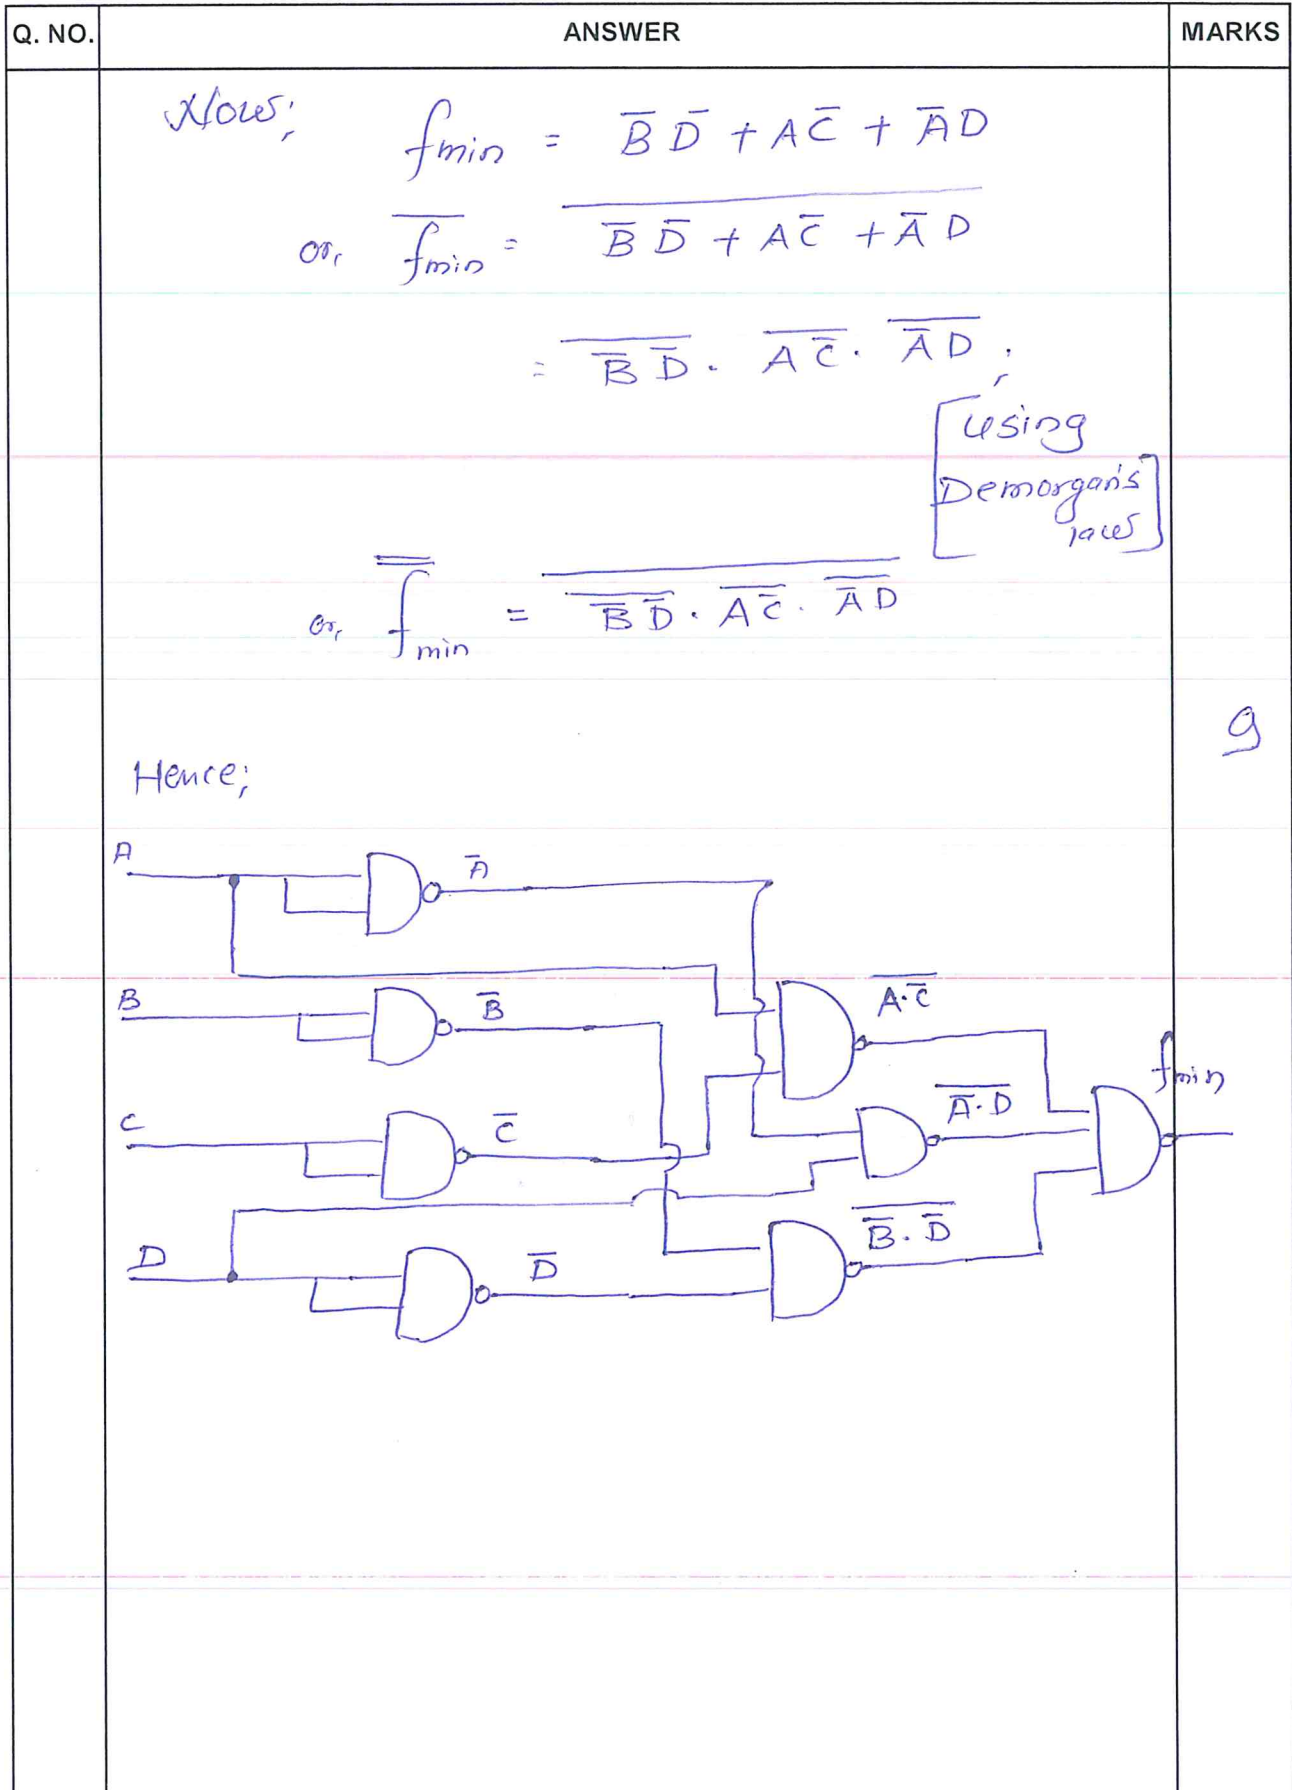 Q. NO. ANSWER MARKS
Now;
f_min = B̅ D̅ + A C̅ + A̅ D
or, \overline{f_min} = \overline{B̅ D̅ + A C̅ + A̅ D}
= \overline{B̅ D̅} . \overline{A C̅} . \overline{A̅ D} ;
[using
Demorgan's
law]
or, \overline{\overline{f_min}} = \overline{\overline{B̅ D̅} . \overline{A C̅} . \overline{A̅ D}}
9
Hence;
A A̅
B B̅ \overline{A.C̅}
f_min
C C̅ \overline{A̅.D}
D D̅ \overline{B̅.D̅}